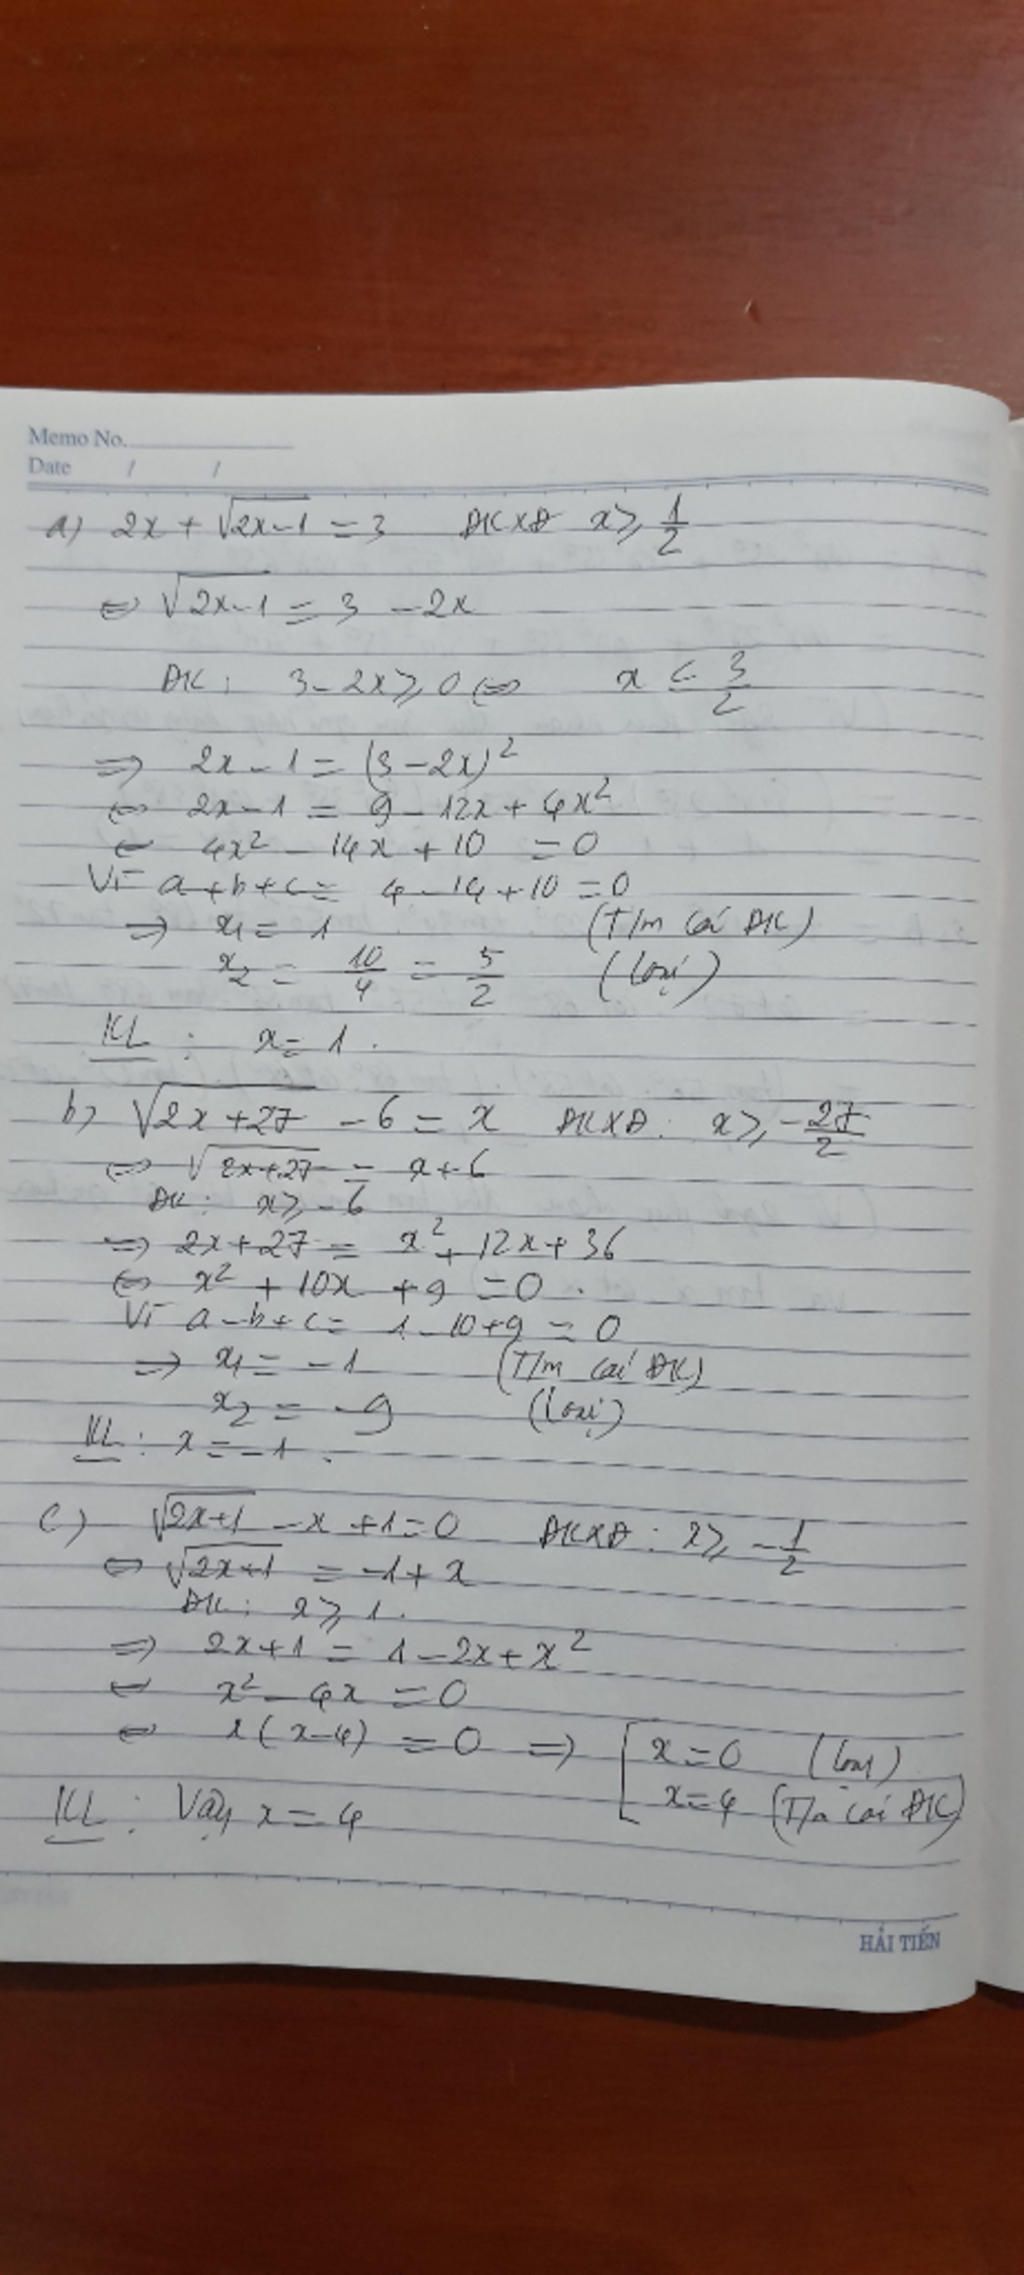 Memo No.
Date / /
a) 2x + √(2x-1) = 3 ĐKXĐ x ≥ 1/2
⇔ √(2x-1) = 3 - 2x
ĐK: 3 - 2x ≥ 0 ⇔ x ≤ 3/2
⇒ 2x - 1 = (3 - 2x)²
⇔ 2x - 1 = 9 - 12x + 4x²
⇔ 4x² - 14x + 10 = 0
Vì a + b + c = 4 - 14 + 10 = 0
⇒ x₁ = 1 (T/m các ĐK)
x₂ = 10/4 = 5/2 (loại)
KL: x = 1.
b) √(2x+27) - 6 = x ĐKXĐ: x ≥ -27/2
⇔ √(2x+27) = x + 6
ĐK: x ≥ -6
⇒ 2x + 27 = x² + 12x + 36
⇔ x² + 10x + 9 = 0.
Vì a - b + c = 1 - 10 + 9 = 0
⇒ x₁ = -1 (T/m các ĐK)
x₂ = -9 (loại)
KL: x = -1.
c) √(2x+1) - x + 1 = 0 ĐKXĐ: x ≥ -1/2
⇔ √(2x+1) = -1 + x
ĐK: x ≥ 1.
⇒ 2x + 1 = 1 - 2x + x²
⇔ x² - 4x = 0
⇔ x(x-4) = 0 ⇒ [ x = 0 (loại)
x = 4 (T/m các ĐK)
KL: Vậy x = 4
HẢI TIẾN